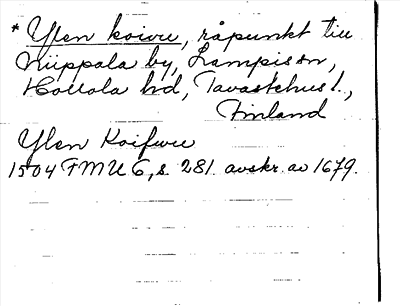 * Ylen koivu, råpunkt till
Niippala by, Lampis sn,
Hollola hd, Tavastehus l.,
Finland
Ylen Koifwu
1504 FMU 6, s. 281. avskr. av 1679.